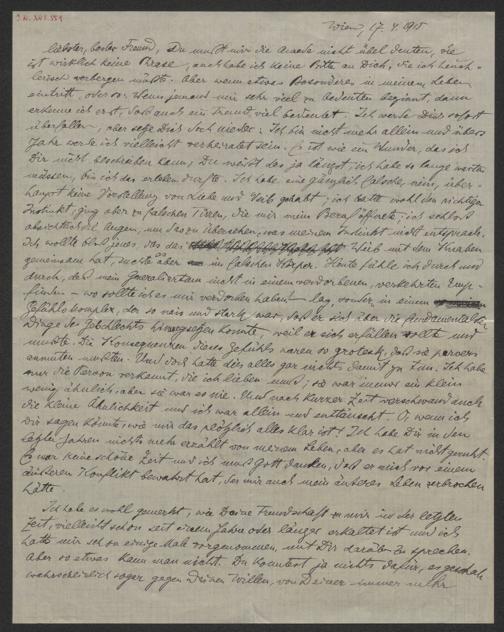 J.N. 201.551
Wien, 17. 4. 1915
liebster, bester Freund, Du musst mir die Anrede nicht übel deuten, sie
ist wirklich keine Phrase, auch habe ich keine Bitte an Dich, die ich heuch-
lerisch verbergen müsste. Aber wenn etwas Besonderes in meinem Leben
eintritt, oder so: Wenn jemand mir sehr viel zu bedeuten beginnt, dann
erkenne ich erst, dass auch ein Freund viel bedeutet. Ich werde Dich sofort
überfallen, aber setze Dich doch nieder: Ich bin nicht mehr allein und übers
Jahr werde ich vielleicht verheiratet sein. Es ist wie ein Wunder, das ich
Dir nicht beschreiben kann; Du weisst das ja längst, ich habe so lange warten
müssen, bis ich das erleben durfte. Ich habe eine gänzlich falsche, nein, über-
haupt keine Vorstellung von Liebe und Weib gehabt; ich hatte wohl den richtigen
Instinkt, ging aber zu falschen Türen, die mir mein Beruf öffnete; ich schloss
absichtlich die Augen, um das zu übersehen, was meinem Instinkt nicht entsprach.
Ich wollte bloss jenes, das das Weib mit dem Knaben
gemeinsam hat, suchte es aber im falschen Körper. Heute fühle ich durch und
durch, dass mein nicht in einem verdorbenen, verkehrten Emp-
finden – wo sollte ich es mir verdorben haben? – lag, sondern in einem
Gefühlskomplex, der so naiv und stark war, dass er sich über die fundamentalsten
Dinge des Geschlechts hinwegsetzen konnte, weil er sich erfüllen wollte und
musste. Die Konsequenzen dieses Gefühls waren so grotesk, dass sie pervers
anmuten mussten. Und doch hatte dies alles gar nichts damit zu tun. Ich habe
nur die Person verkannt, die ich lieben muss; sie war immer ein klein
wenig ähnlich, aber sie war es nie. Und nach kurzer Zeit verschwand auch
die kleine Ähnlichkeit und ich war allein und enttäuscht. O, wenn ich
Dir sagen könnte, wie mir das plötzlich alles klar ist! Ich habe Dir in den
letzten Jahren nichts mehr erzählt von meinem Leben, aber es hat nicht geruht.
Es war keine schöne Zeit und ich muss Gott danken, dass er mich vor einem
äusseren Konflikt bewahrt hat, der mir auch mein inneres Leben zerbrochen
hätte.
Ich habe es wohl gemerkt, wie Deine Freundschaft zu mir in der letzten
Zeit, vielleicht schon seit einem Jahre oder länger erkaltet ist und ich
hatte mir schon einige Male vorgenommen, mit Dir darüber zu sprechen.
Aber so etwas kann man nicht. Du konntest ja nichts dafür, es geschah
wahrscheinlich sogar gegen Deinen Willen, von Deiner immer mehr